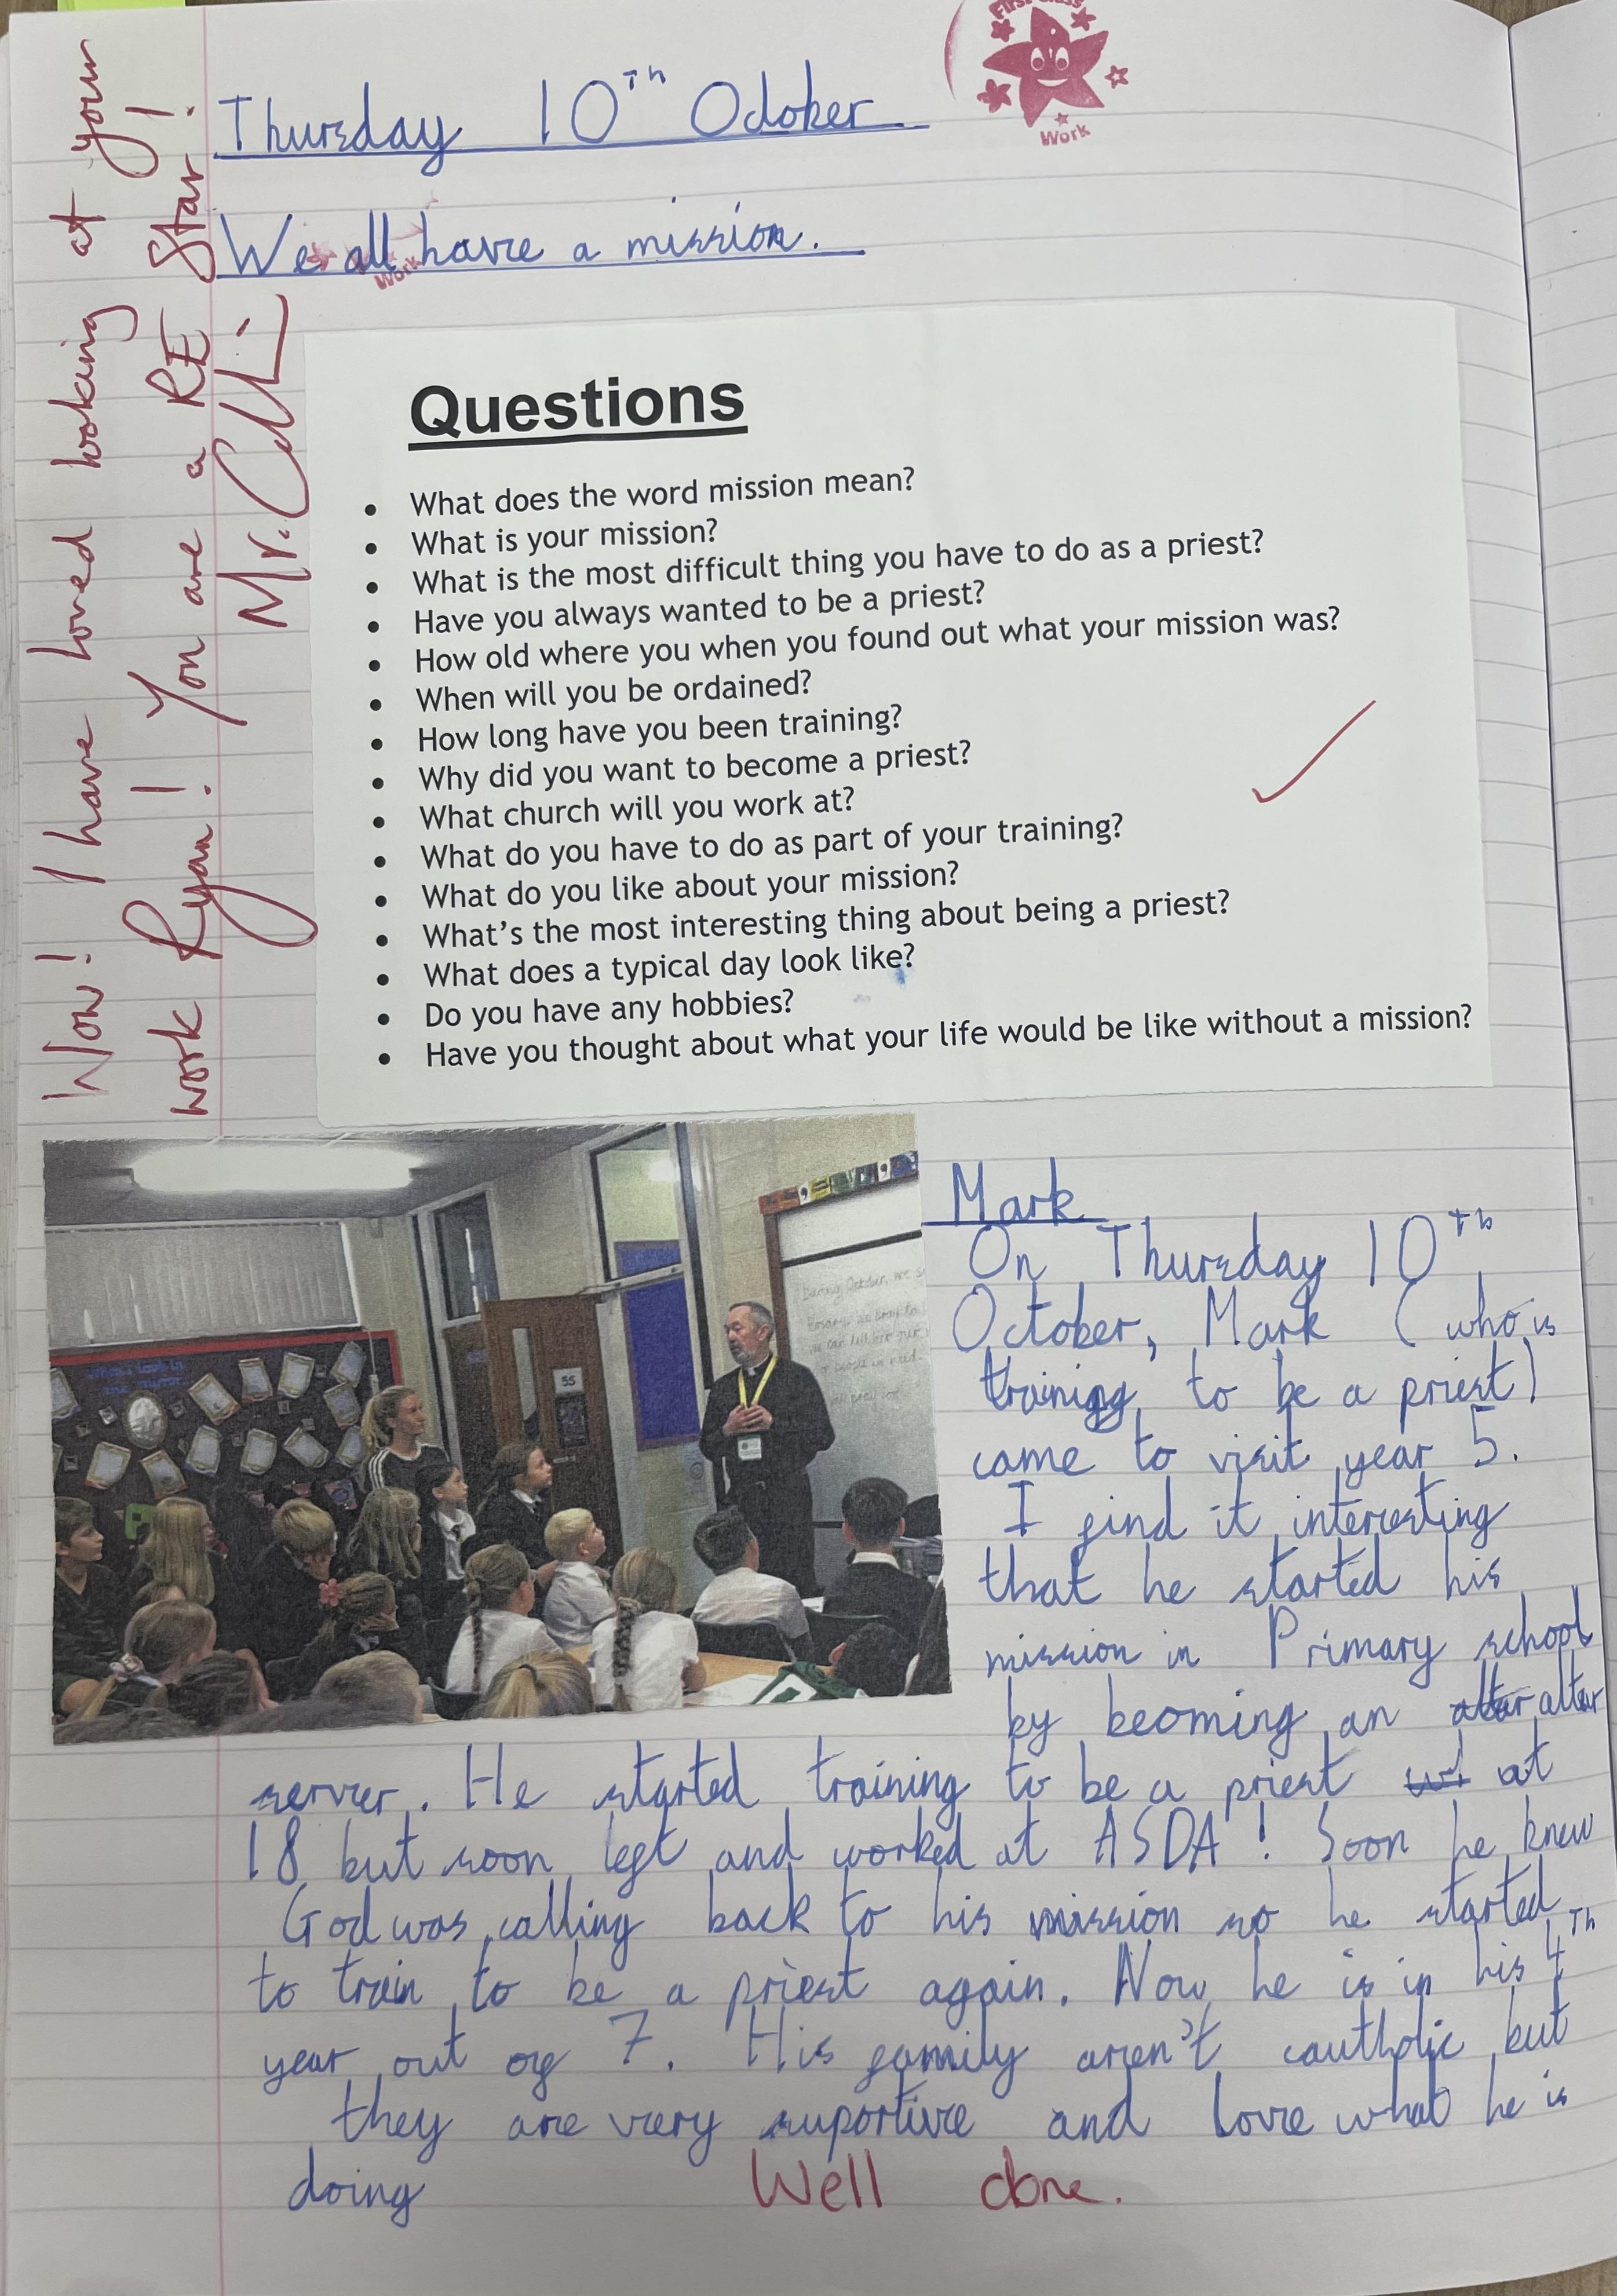 Thursday 10Th Odober
First Class
Work
We all have a mission.
Work
Wow! I have loved looking at your
work Ryan! You are a RE Star!
Questions
• What does the word mission mean?
• What is your mission?
• What is the most difficult thing you have to do as a priest?
• Have you always wanted to be a priest?
• How old where you when you found out what your mission was?
• When will you be ordained?
• How long have you been training?
• Why did you want to become a priest?
• What church will you work at?
• What do you have to do as part of your training?
• What do you like about your mission?
• What's the most interesting thing about being a priest?
• What does a typical day look like?
• Do you have any hobbies?
• Have you thought about what your life would be like without a mission?
5S
Mark
On Thursday 10Th
October, Mark (who is
training to be a priest)
came to visit year 5.
I find it interesting
that he started his
mission in Primary school
by becoming an altar altar
server. He started training to be a priest at
18 but soon left and worked at ASDA! Soon he knew
God was calling back to his mission so he started
to train to be a priest again. Now he is in his 4Th
year out of 7. His family aren't cautholic but
they are very suportive and love what he is
doing
Well done.